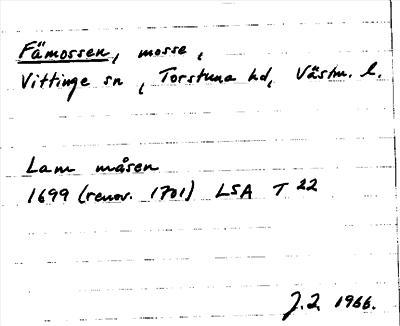 Fämossen, mosse,
Vittinge sn, Torstuna hd, Västm. l.
Lam måsen
1699 (renov. 1701) LSA T 22
J.2. 1966.